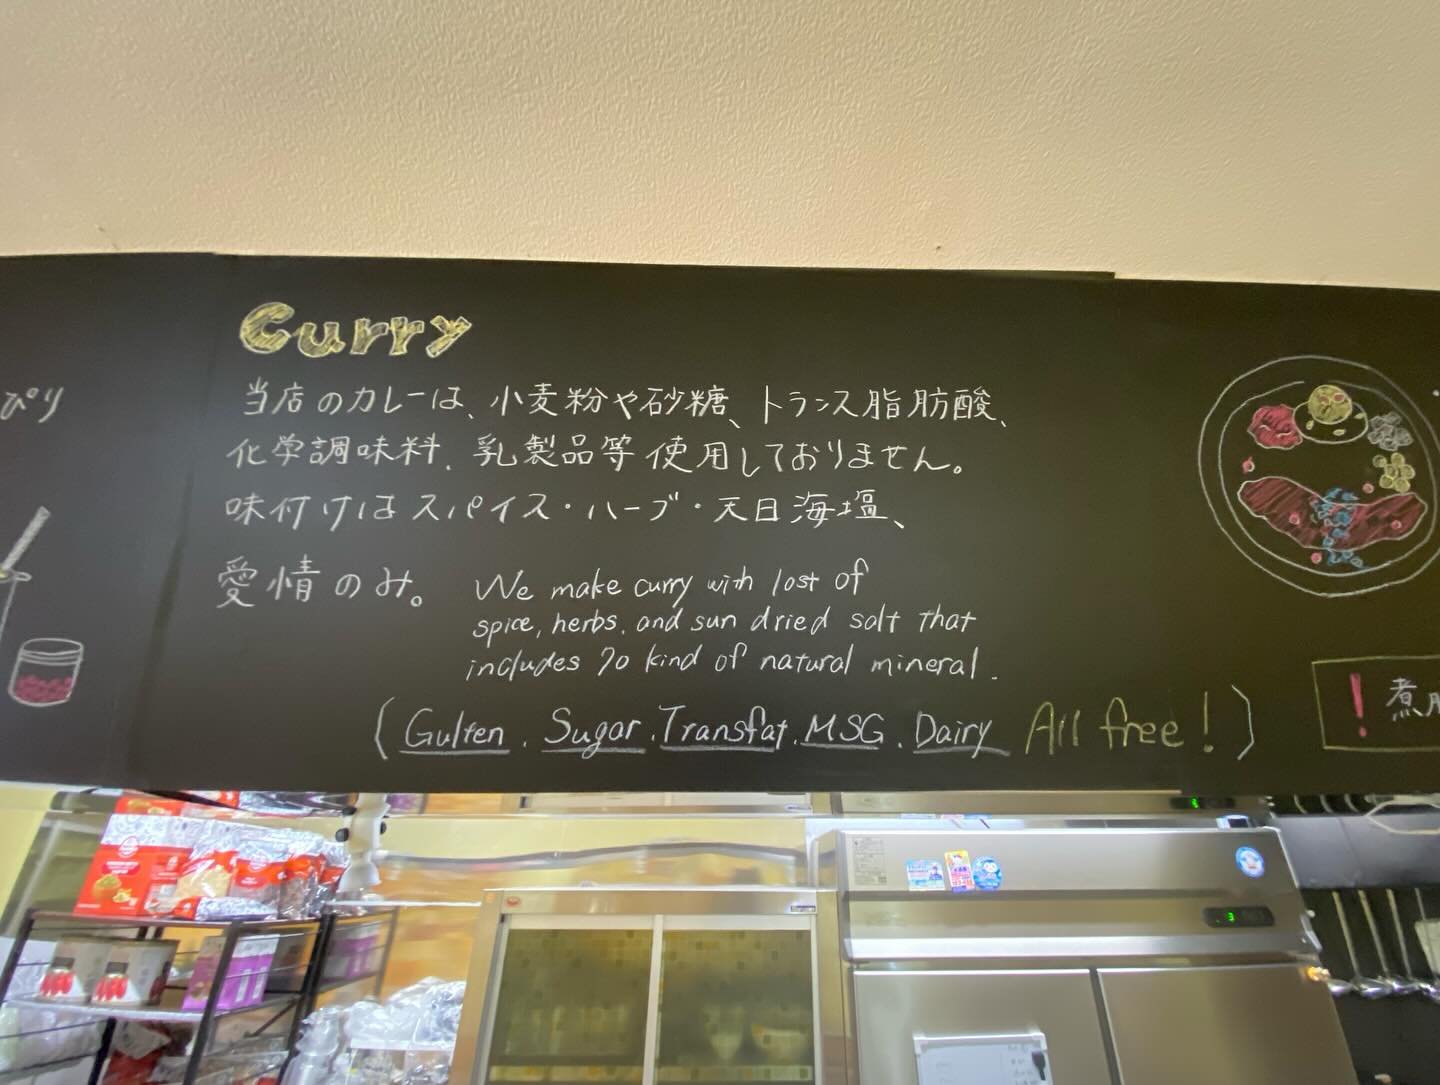 Curry
ぴり
当店のカレーは、小麦粉や砂糖、トランス脂肪酸、
化学調味料、乳製品等使用しておりません。
味付けはスパイス・ハーブ・天日海塩、
愛情のみ。
We make curry with lost of
spice, herbs, and sun dried salt that
includes 70 kind of natural mineral.
(Gulten, Sugar, Transfat, MSG, Dairy All free!)
! 煮
3